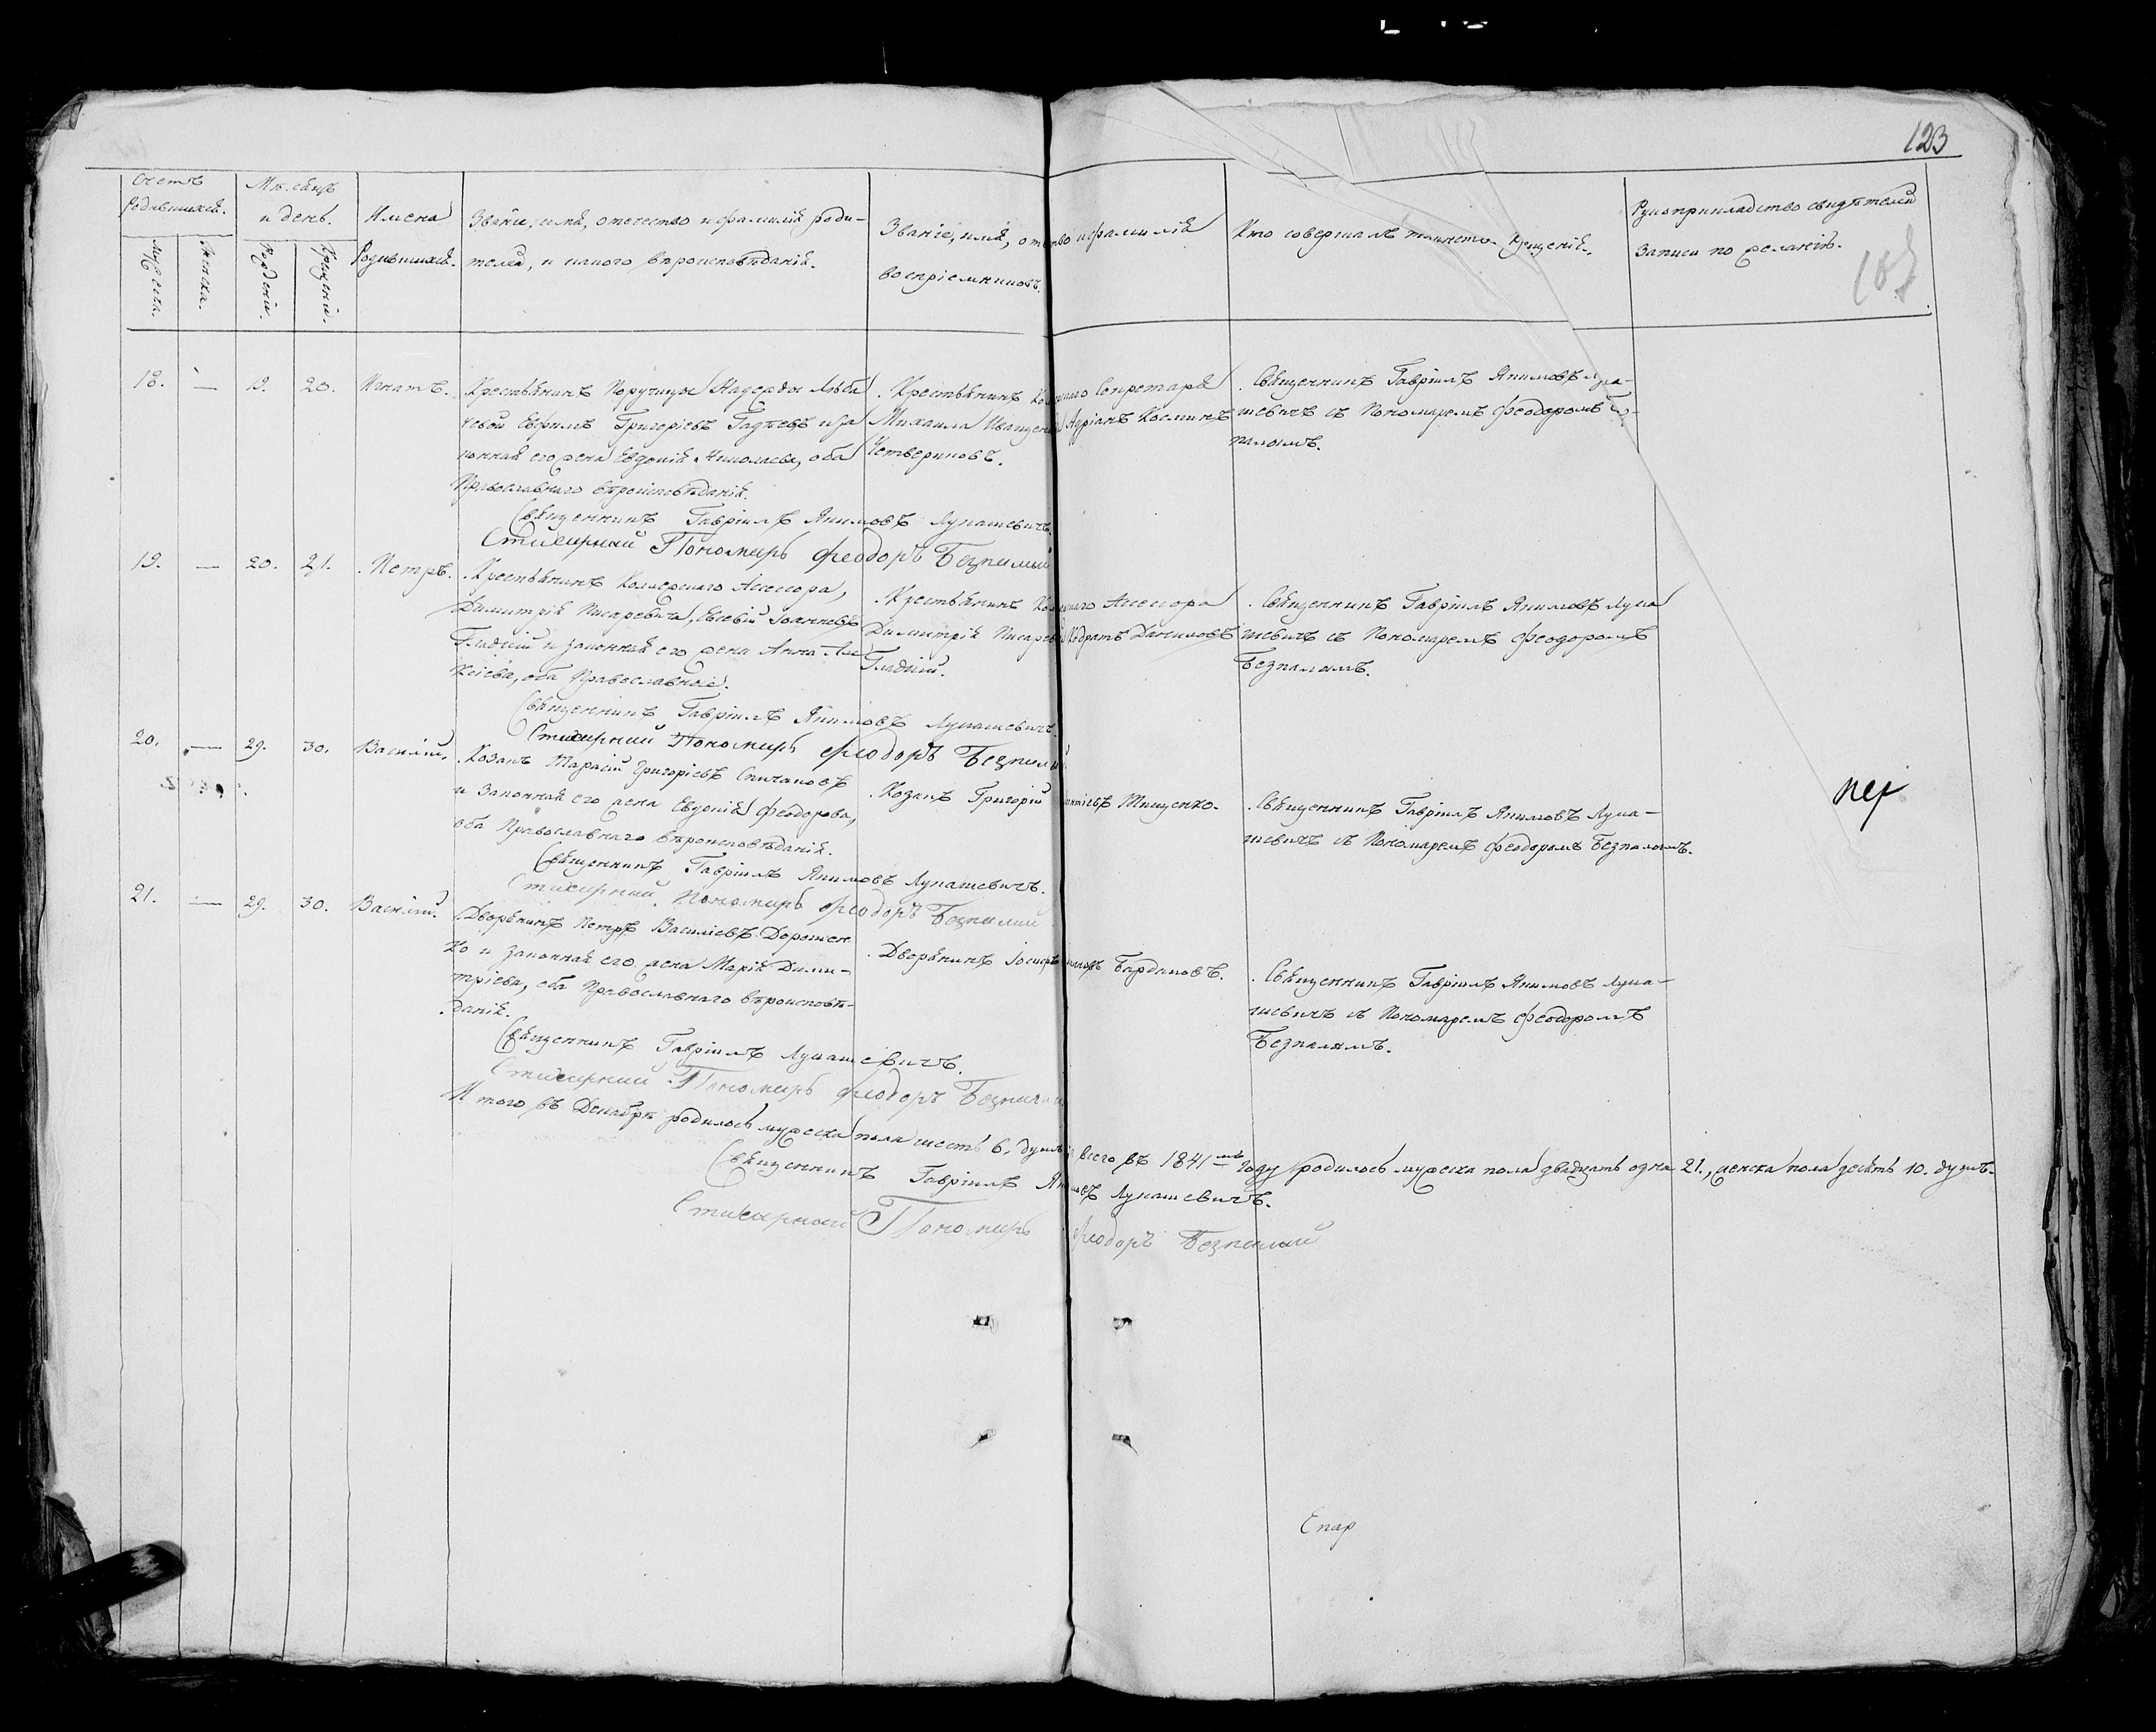 123
Счетъ родившихся.
Мѣсяцъ и день.
Имена Родившихся.
Званіе, имя, отечество и фамилія роди-
телей, и какого вѣроисповѣданія.
Званіе, имя, отчество и фамилія
воспріемниковъ.
Кто совершалъ таинство крещенія.
Рукоприкладство свидѣтелей
записи по желанію.
Мужеска.
Женска.
Рожденія.
Крещенія.
18. — 19. 20. Игнатъ.
Крестьянинъ Поручицы Надежды
чевой Ефимъ Григоріевъ и за
конная его жена Евдокія Николаева, оба
Православнаго вѣроисповѣданія.
Крестьянинъ Секретаря
Михаила Иващенка Адріанъ Косминъ
Четвериковъ.
Священникъ Гавріилъ Якимовъ Лука-
шевичъ съ Пономаремъ Феодоромъ Без-
палымъ.
Священникъ Гавріилъ Якимовъ Лукашевичъ.
Стихарный Пономарь Феодоръ Безпалый
19. — 20. 21. Петръ.
Крестьянинъ Коллежскаго Ассесора,
Димитрія Писаревича, Евсевій Іоанновъ
Гладкій и законная его жена Анна Але
ксіева, оба Православные.
Крестьянинъ Коллежскаго Ассесора
Димитрія Писаревича Кодратъ Даниловъ
Гладкій.
Священникъ Гавріилъ Якимовъ Лука
шевичъ съ Пономаремъ Феодоромъ
Безпалымъ.
Священникъ Гавріилъ Якимовъ Лукашевичъ.
Стихарный Пономарь Феодоръ Безпалый
20. — 29. 30. Василій.
Козакъ Тарасій Григоріевъ Спичаковъ
и Законная его жена Евдокія Феодорова,
оба Православнаго вѣроисповѣданія.
Козакъ Григорій Тищенко.
Священникъ Гавріилъ Якимовъ Лука-
шевичъ съ Пономаремъ Феодоромъ Безпалымъ.
Священникъ Гавріилъ Якимовъ Лукашевичъ.
Стихарный Пономарь Феодоръ Безпалый
21. — 29. 30. Василій.
Дворянинъ Петръ Василіевъ Дорошен
ко и законная его жена Марія Дими-
тріева, оба Православнаго вѣроисповѣ-
данія.
Дворянинъ Іосифъ Бардаковъ.
Священникъ Гавріилъ Якимовъ Лука-
шевичъ съ Пономаремъ Феодоромъ
Безпалымъ.
Священникъ Гавріилъ Лукашевичъ.
Стихарный Пономарь Феодоръ Безпалый
И того въ Декабрѣ родилось мужеска пола шесть 6. душъ, всего въ 1841мъ году родилось мужеска пола двадцать одна 21., женска пола десять 10. душъ.
Священникъ Гавріилъ Якимовъ Лукашевичъ.
Стихарный Пономарь Феодоръ Безпалый
Епар